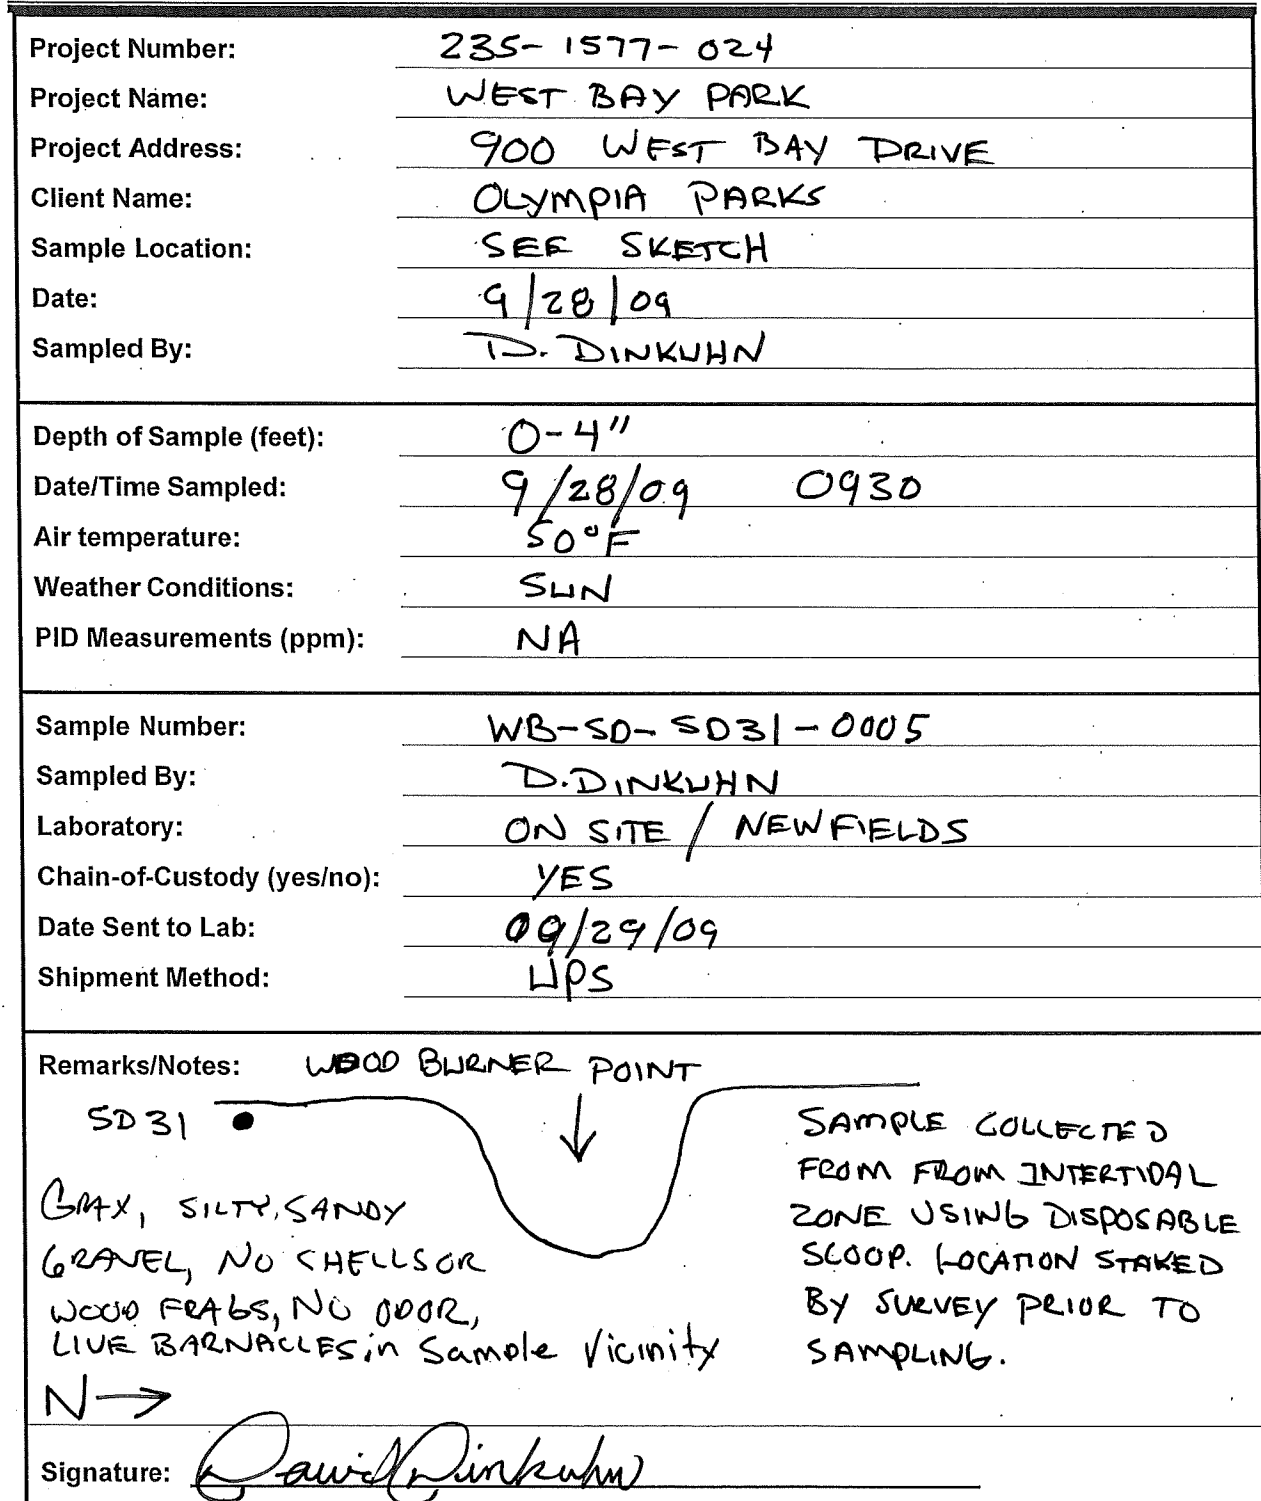 Project Number: 235-1577-024
Project Name: WEST BAY PARK
Project Address: 900 WEST BAY DRIVE
Client Name: OLYMPIA PARKS
Sample Location: SEE SKETCH
Date: 9/28/09
Sampled By: D. DINKUHN
Depth of Sample (feet): 0-4"
Date/Time Sampled: 9/28/09 0930
Air temperature: 50°F
Weather Conditions: SUN
PID Measurements (ppm): NA
Sample Number: WB-SD-SD31-0005
Sampled By: D. DINKUHN
Laboratory: ON SITE / NEWFIELDS
Chain-of-Custody (yes/no): YES
Date Sent to Lab: 09/29/09
Shipment Method: UPS
Remarks/Notes: WOOD BURNER POINT
SD31
GRAY, SILTY, SANDY
GRAVEL, NO SHELLS OR
WOOD FRAGS, NO ODOR,
LIVE BARNACLES in Sample Vicinity
N→
SAMPLE COLLECTED
FROM FROM INTERTIDAL
ZONE USING DISPOSABLE
SCOOP. LOCATION STAKED
BY SURVEY PRIOR TO
SAMPLING.
Signature: David Dinkuhn